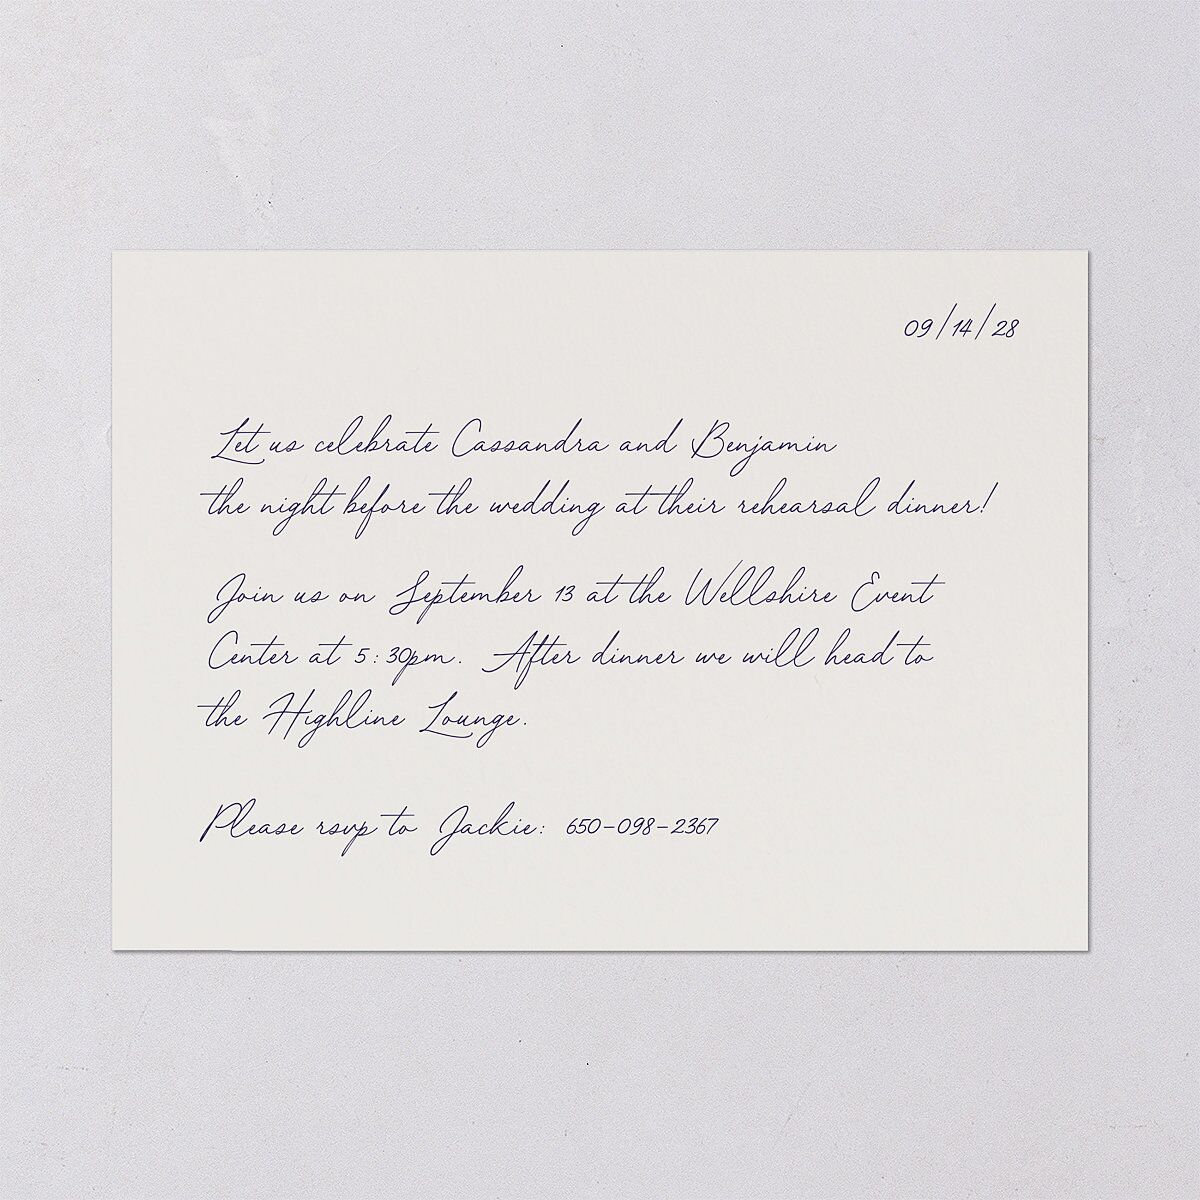 09/14/28
Let us celebrate Cassandra and Benjamin
the night before the wedding at their rehearsal dinner!
Join us on September 13 at the Wellshire Event
Center at 5:30pm. After dinner we will head to
the Highline Lounge.
Please rsvp to Jackie: 650-098-2367